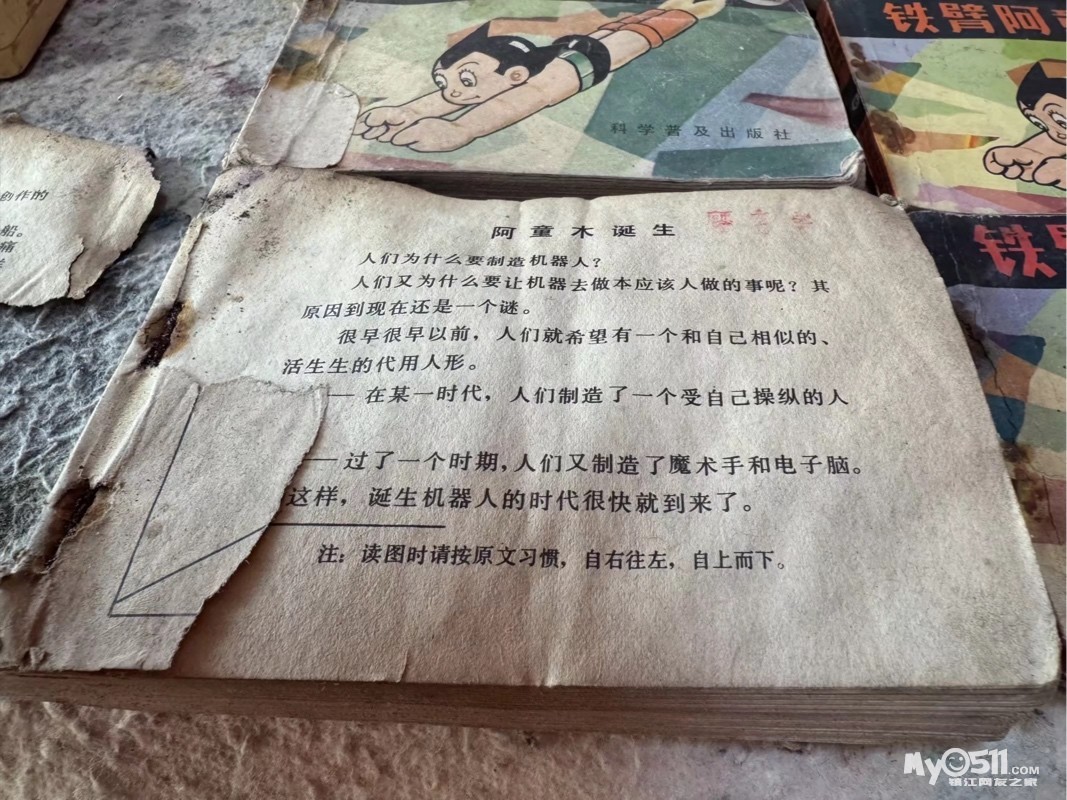 铁臂阿
科学普及出版社
铁臂
创作的
船。
痛
阿童木诞生
人们为什么要制造机器人？
人们又为什么要让机器去做本应该人做的事呢？其
原因到现在还是一个谜。
很早很早以前，人们就希望有一个和自己相似的、
活生生的代用人形。
— 在某一时代，人们制造了一个受自己操纵的人
— 过了一个时期，人们又制造了魔术手和电子脑。
这样，诞生机器人的时代很快就到来了。
注：读图时请按原文习惯，自右往左，自上而下。
My0511.COM
镇江网友之家